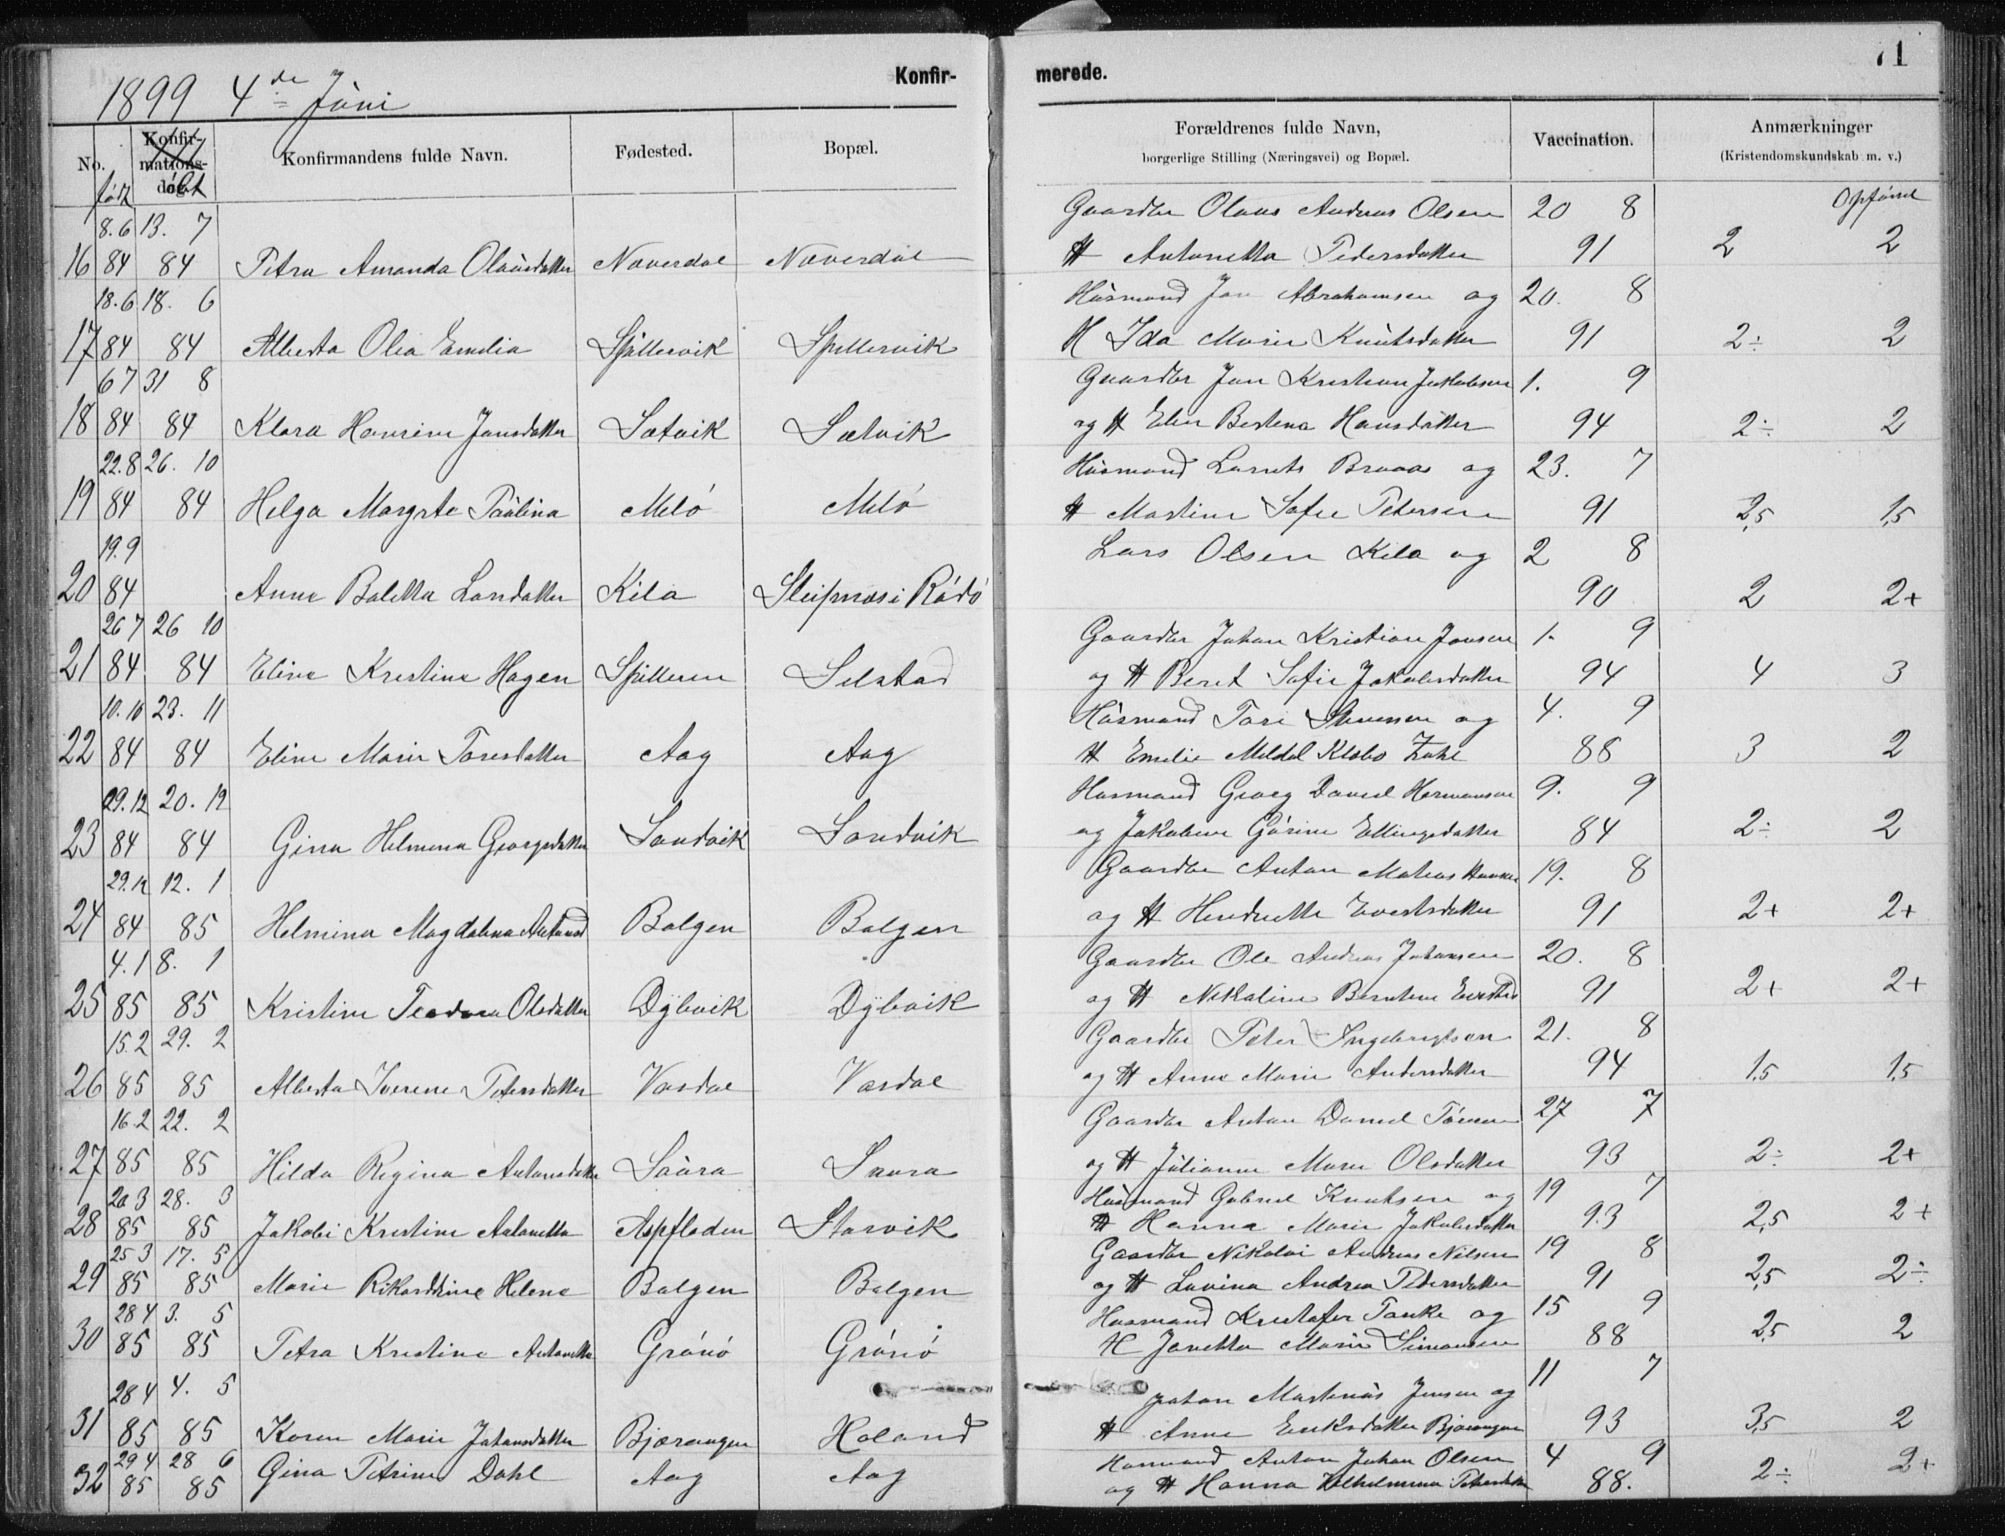 1899 4de Júni
Konfir-
No.
Konfir-
mations-
dag.
født
døbt
Konfirmandens fulde Navn.
Fødested.
Bopæl.
8.6 13. 7
16 84 84 Petra Amanda Olausdatter Næverdal Næverdal
18.6 18. 6
17 84 84 Alberta Olea Emilia Spillervik Spillervik
6 7 31 8
18 84 84 Klara Hansine Jansdatter Sætvik Sætvik
22.8 26. 10
19 84 84 Helga Margrete Paulina Meló Meló
19.9
20 84 Anne Baletta Larsdatter Kila Sleipnæs i Rødø
26 7 26 10
21 84 84 Eline Kristine Hagen Spilleren Selstad
10.10 23. 11
22 84 84 Eline Marie Toresdatter Aag Aag
29.12 20. 12
23 84 84 Gina Helmina Georgsdatter Sandvik Sandvik
29.12 12. 1
24 84 85 Helmina Magdalena Antonsd Bolgen Bolgen
4.1 8. 1
25 85 85 Kristine Teodora Olsdatter Dybvik Dybvik
15.2 29. 2
26 85 85 Alberta Iverine Petersdatter Vasdal Vasdal
16.2 22. 2
27 85 85 Hilda Regina Antonsdatter Saura Saura
20 3 28. 3
28 85 85 Jakobi Kristine Antonette Aspfloden Storvik
25 3 17. 5
29 85 85 Marie Rikarddine Helene Bolgen Bolgen
28 4 3. 5
30 85 85 Petra Kristine Antonette Grónó Grónó
28 4 4. 5
31 85 85 Karen Marie Johansdatter Bjærangen Holand
29 4 28 6
32 85 85 Gina Petrine Dahl Aag Aag
merede.
71
Forældrenes fulde Navn,
borgerlige Stilling (Næringsvei) og Bopæl.
Vaccination.
Anmærkninger
(Kristendomskundskab m. v.)
Opførsel
Gaardbr Olaus Andreas Olsen 20 8
H Antonetta Pedersdatter 91 2 2
Húsmand Jan Abrahamsen og 20. 8
H Ida Marie Knútsdatter 91 2÷ 2
Gaardbr Jan Kristian Jakobsen 1. 9
og H Elen Bertena Hansdatter 94 2÷ 2
Húsmand Lornts Braaas og 23. 7
H Martine Sofie Petersen 91 2,5 1,5
Lars Olsen Kila og 2 8
90 2 2+
Gaardbr Johan Kristian Jonsen 1. 9
og H Beret Sofie Jakobsdatter 94 4 3
Húsmand Tore og 4. 9
H Emilie Meldal Klæbo Zahl 88 3 2
Husmand Georg Daniel Hermansen 9. 9
og Jakobine Gúrine Ellingsdatter 84 2÷ 2
Gaardbr Anton Matias Hansen 19. 8
og H Hendrette Evertsdatter 91 2+ 2+
Gaardbr Ole Andreas Johansen 20. 8
og H Nikoline Berntine Evertsd 91 2+ 2+
Gaardbr Peter Ingebrigtsen 21. 8
og H Anne Marie Andersdatter 94 1,5 1,5
Gaardbr Anton Daniel Tónnesen 27 7
og H Júlianne Marie Olsdatter 93 2÷ 2+
Húsmand Gabriel Knutsen og 19 7
H Hanna Marie Jakobsdatter 93 2,5 2+
Gaardbr Nikolai Andreas Nilsen 19 8
og H Lovina Andrea Pedersdatter 91 2,5 2÷
Husmand Kristofer Tanke og 15 9
H Janetta Marie Simonsen 88 2,5 2
11 7
Johan Martinus Jensen og
H Anne Eriksdatter Bjærangen 93 3,5 2
Husmand Anton Johan Olsen 4 9
og H Hanna Vilhelmina Petersdatter 88. 2÷ 2+